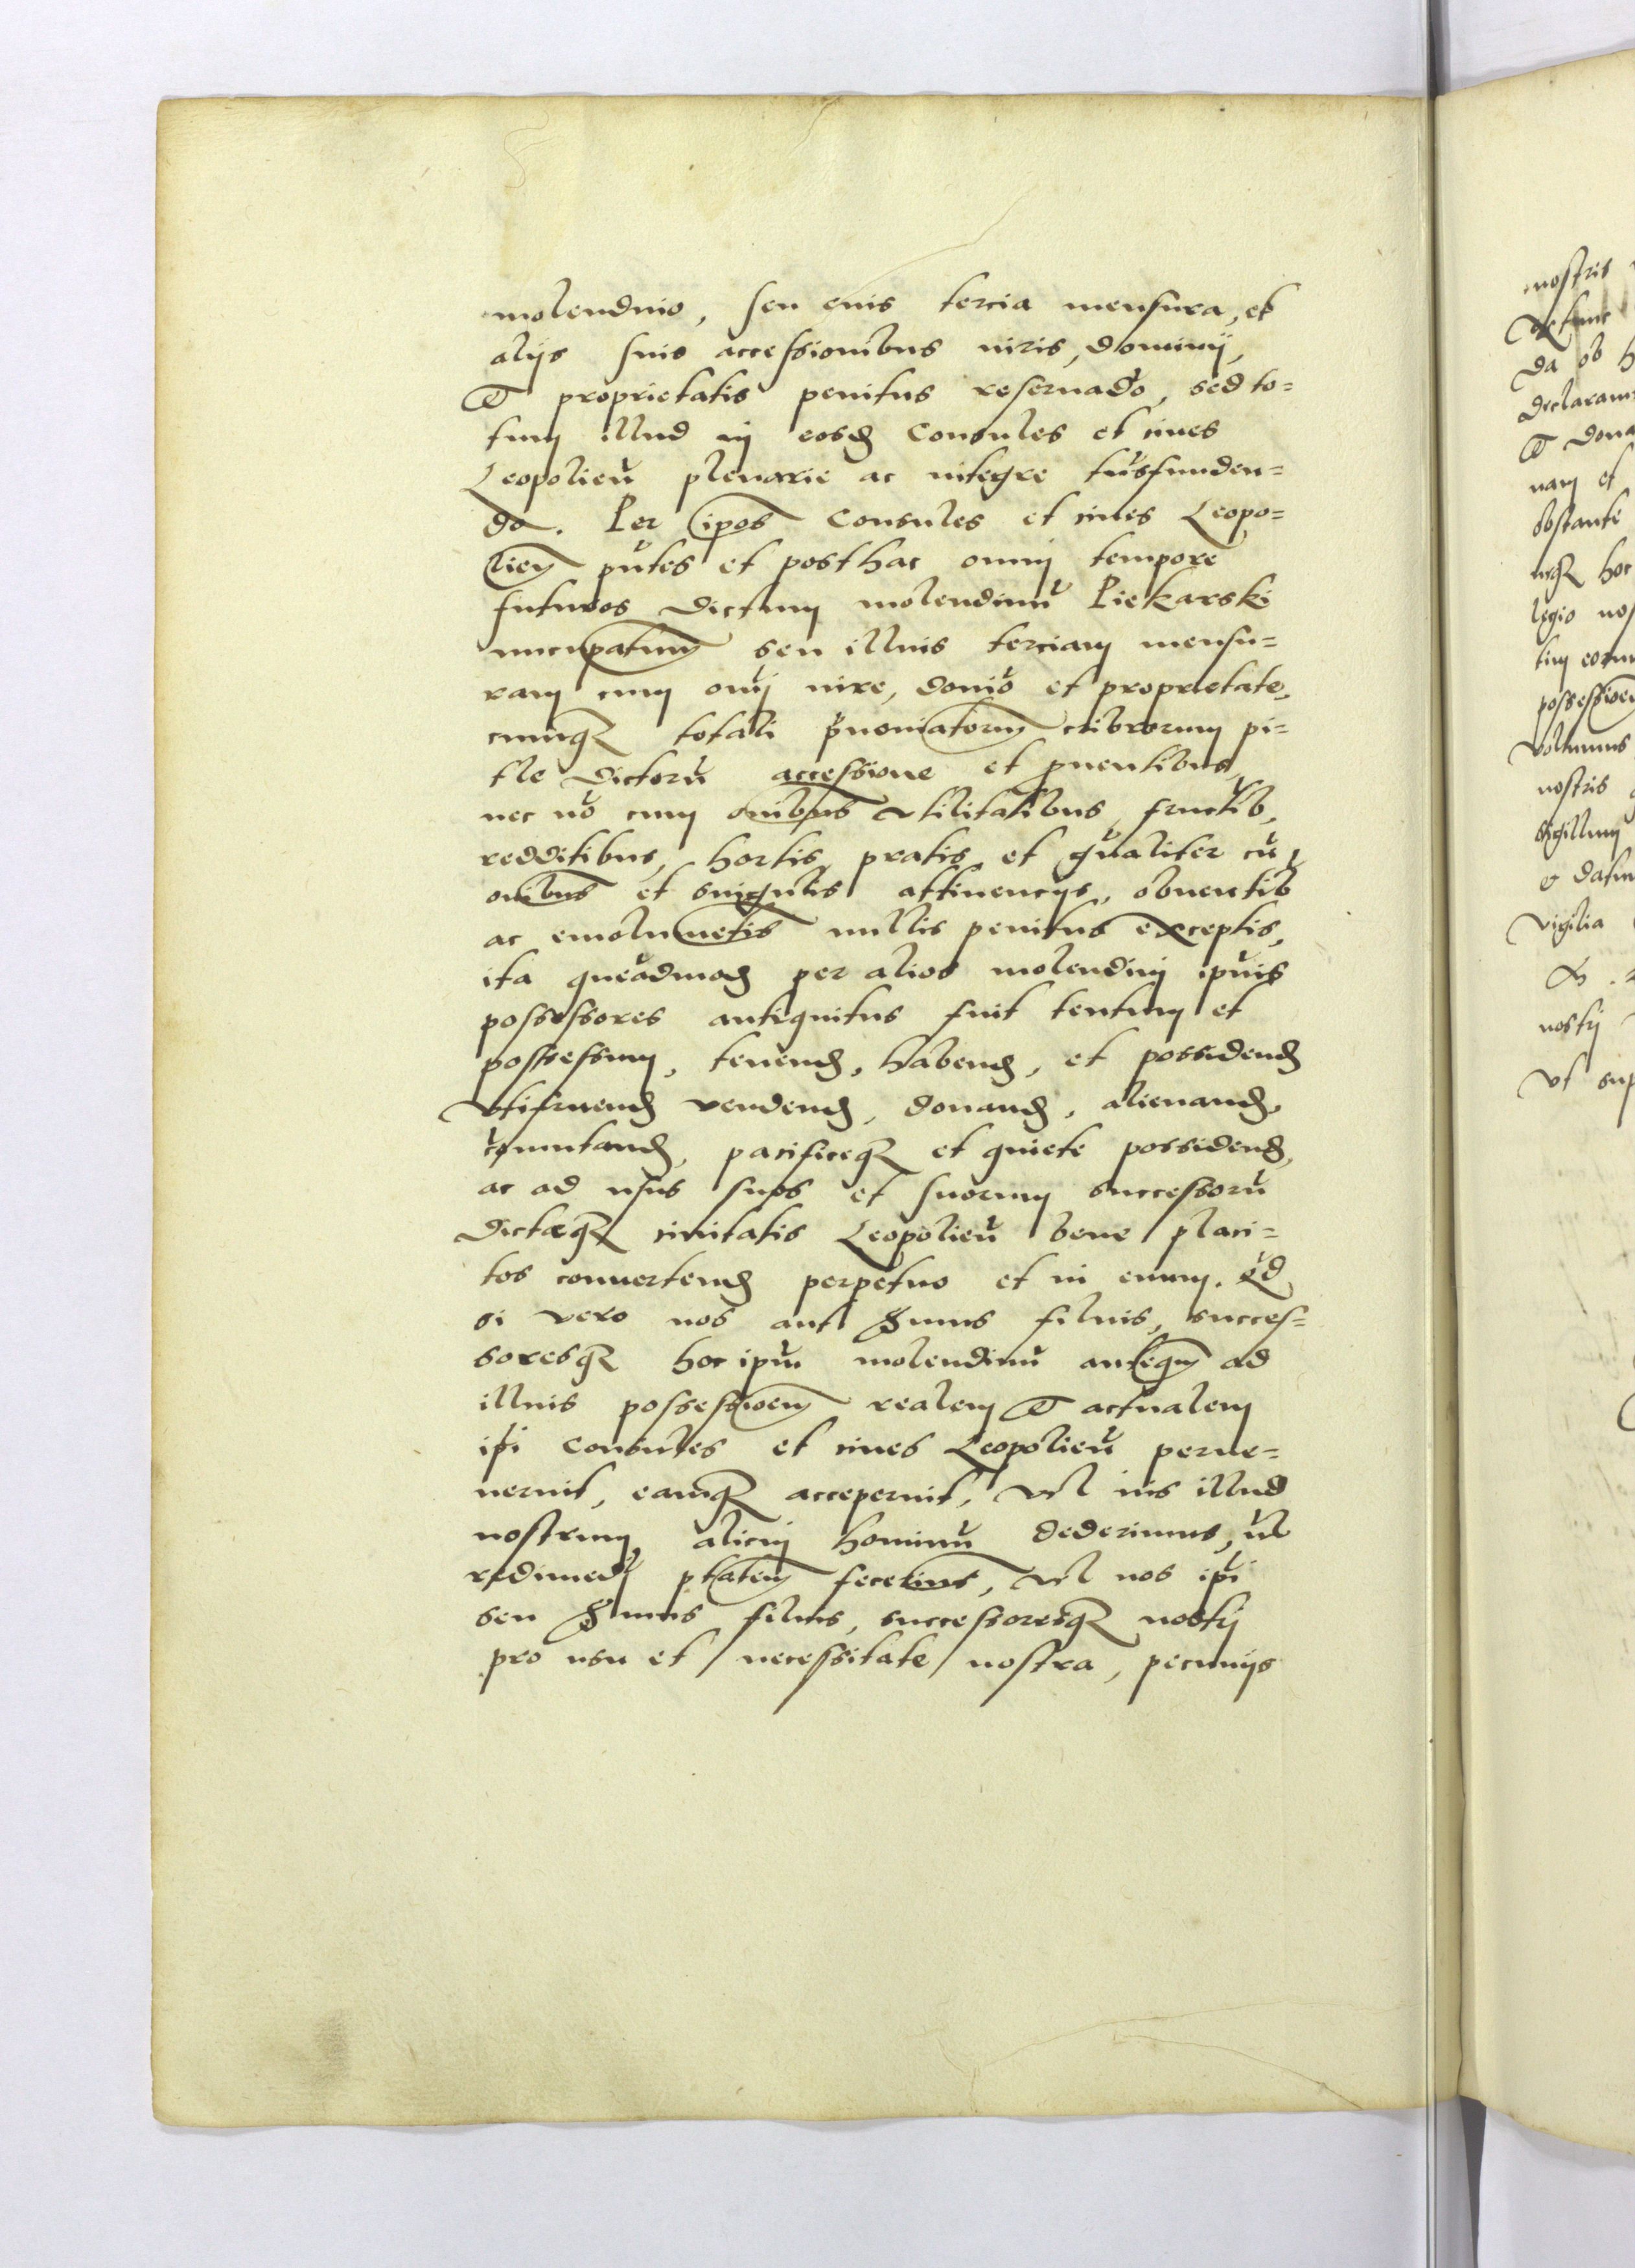 molendino, seu eius tercia mensura, et
alijs suis accessionibus iuris, dominij,
et proprietatis penitus reseruādo, sed to=
tum illud in eosdē Consules et ciues
Leopolieñ plenarie ac integre trāsfunden=
do. Per ipos Consules et ciues Leopo=
lieñ pñtes et posthac omni tempore
futuros dictum molendinū Piekarski
nuncupatum seu illius terciam mensu=
ram cum omi iure, domīo et proprietate,
cumq totali p̄nomiatorum cribrorum pi=
tle dictorū accessione et ꝓuentibus,
nec nō cum omibus vtilitatibus, fructib,
redditibus, hortis, pratis, et gñaliter cū
omibus et singulis attinencijs, obuentib
ac emolumētis nullis penitus exceptis,
ita queādmod per alios molendini ipīus
possessores antiquitus fuit tentum et
possessum, tenend, habend, et possidend
vtifruend vendend, donand, alienand,
cōmutand, pacificeq et quiete possidend,
ac ad usus suos et suorum successorū
dictæq ciuitatis Leopolieñ bene placi=
tos conuertend perpetuo et in euum. Qd
si vero nos aut Smus filius, succes=
soresq hoc ipm molendinū anteqm ad
illius possessioem realem et actualem
ipi Consules et ciues Leopolieñ perue=
nerint, eamq acceperint, vel ius illud
nostrum alicui hominū dederimus, vl
redimēdi ptatem fecerimus, vel nos ipi
seu Smus filius, successoresq nostri
pro usu et necessitate nostra, pecunijs
nostris
da ob h
declaram
et dona
nam et
obstante
hoc
legio nos
possessioem
volumus
nostris
sigillum
vigilia
nostri
vt sup